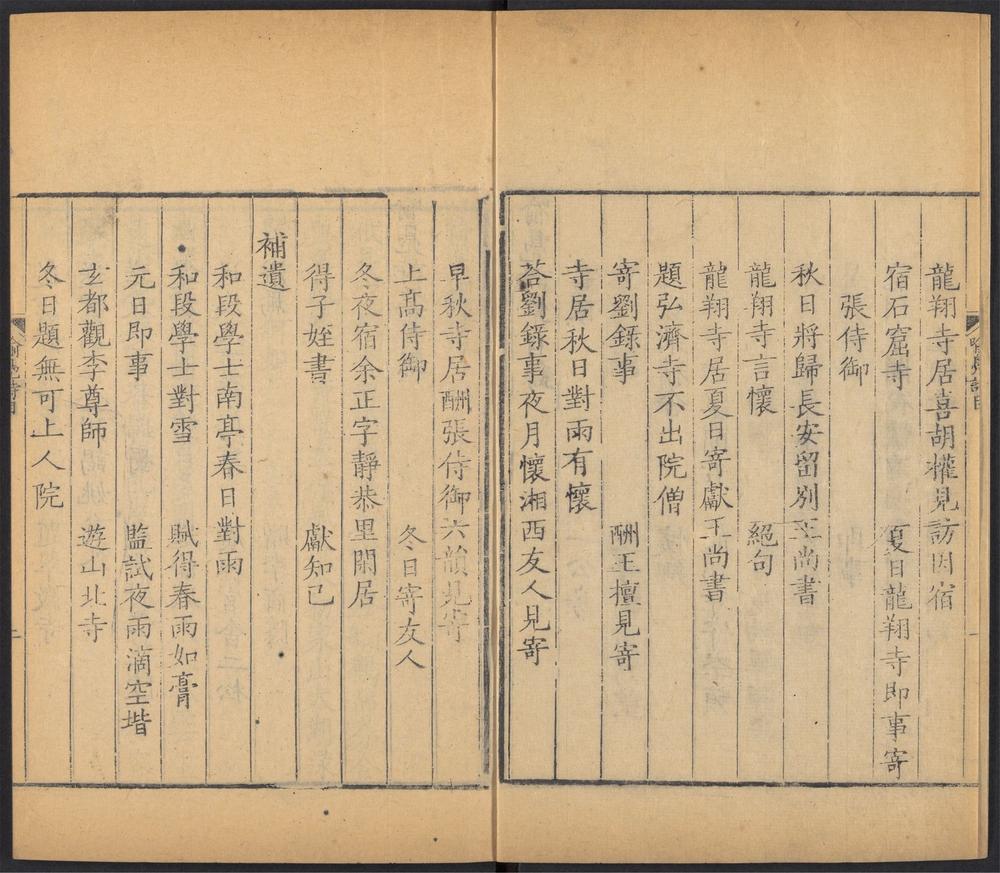 龍翔寺居喜胡權見訪因宿
宿石窟寺　夏日龍翔寺即事寄
張侍御
秋日將歸長安留別王尚書
龍翔寺言懷　絕句
龍翔寺居夏日寄獻王尚書
題弘濟寺不出院僧
寄劉錄事　酬王擅見寄
寺居秋日對雨有懷
荅劉錄事夜月懷湘西友人見寄
早秋寺居酬張侍御六韻見寄
上髙侍御　冬日寄友人
冬夜宿余正字靜恭里閑居
得子姪書　獻知己
補遺
和段學士南亭春日對雨
和段學士對雪　賦得春雨如膏
元日即事　監試夜雨滴空堦
玄都觀李尊師　遊山北寺
冬日題無可上人院